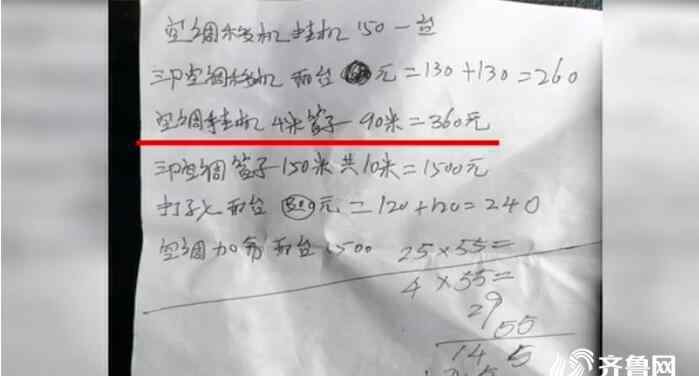 空调移机挂机150一台
卫空调移机 两台 元=130+130=260
空调挂机4米管子一90米=360元
空调管子150米共10米=1500元
打孔 两台 元=120+120=240
空调加氟两台 500
25×55=
4×55=
29
55
14 5
齐鲁网